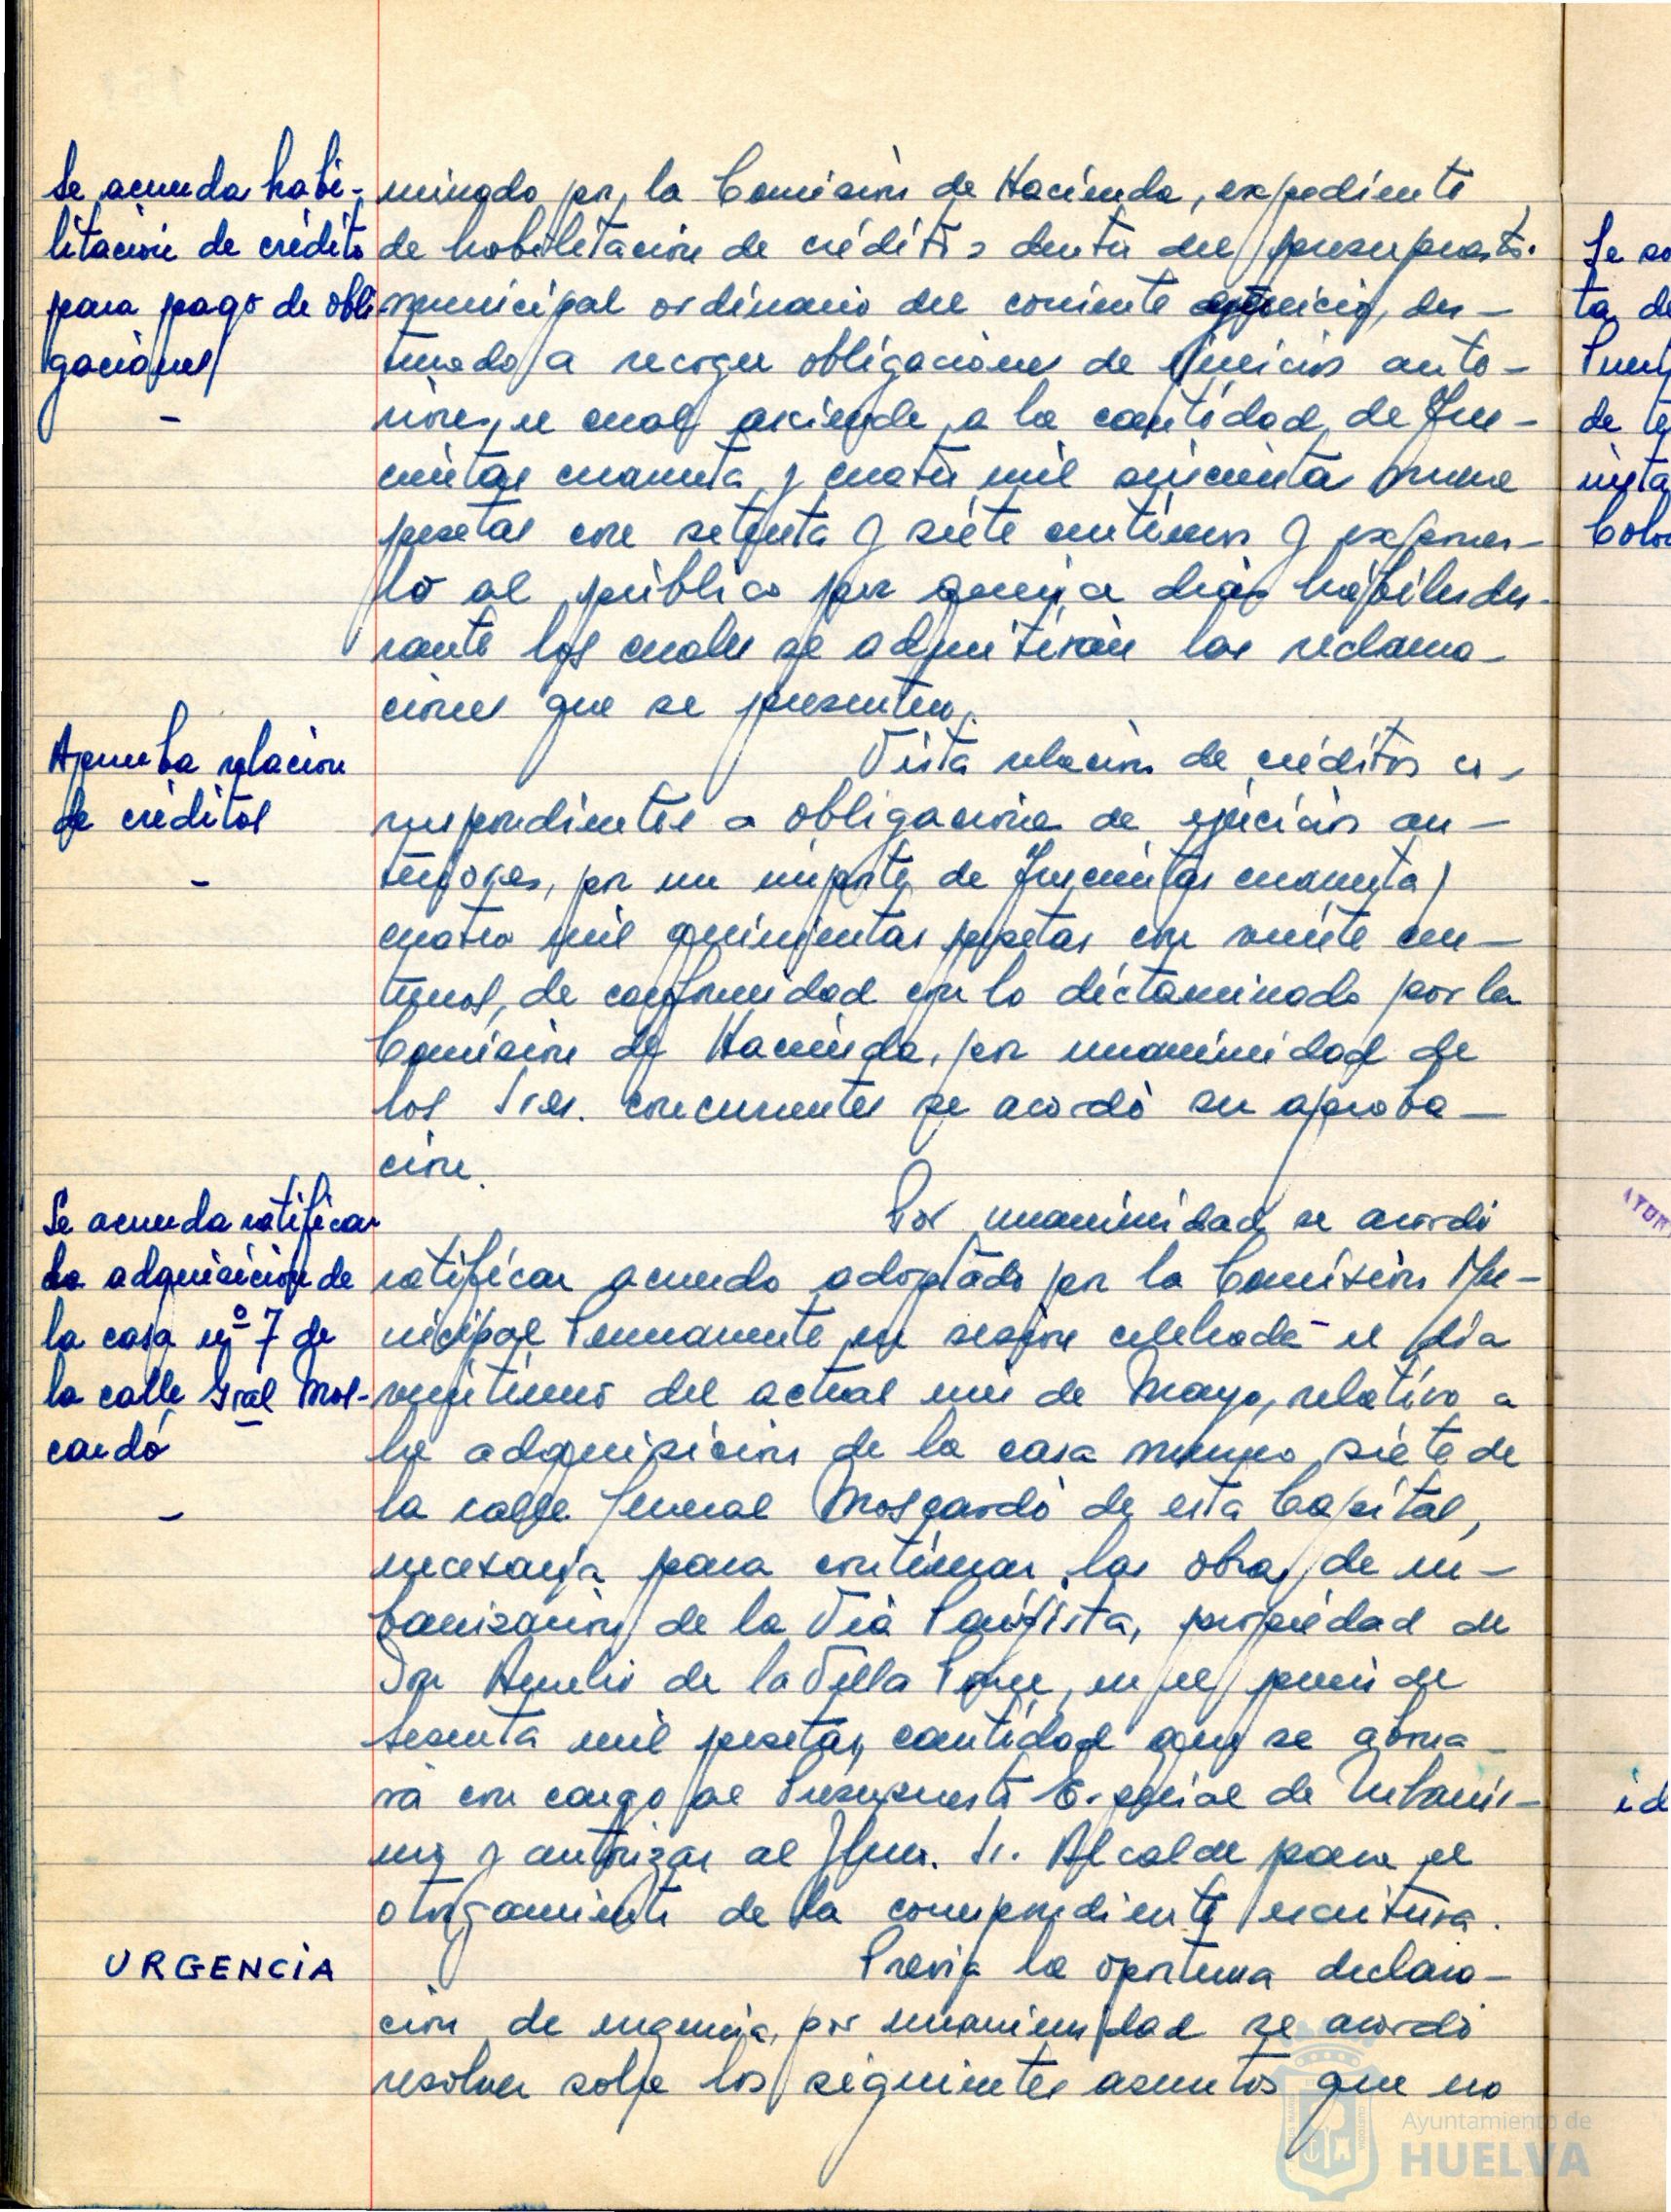 Se acuerda habi-
litación de crédito
para pago de obli-
gaciones
minado por la Comisión de Hacienda, expediente
de habilitación de créditos dentro del presupuesto
municipal ordinario del corriente ejercicio, des-
tinado a recoger obligaciones de ejercicios ante-
riores, el cual asciende a la cantidad de Tres-
cientas cuarenta y cuatro mil quinientas nueve
pesetas con setenta y siete centimos y exponer-
lo al público por quince dias habiles du-
rante los cuales se admitirán las reclama-
ciones que se presenten.
Aprueba relacion
de créditos
Vista relación de créditos co-
rrespondientes a obligaciones de ejercicios an-
teriores, por un importe de Trescientas cuarenta y
cuatro mil quinientas pesetas con veinte cen-
timos, de conformidad con lo dictaminado por la
Comisión de Hacienda, por unanimidad de
los Sres. concurrentes se acordó su aproba-
ción.
Se acuerda ratificar
la adquisición de
la casa nº 7 de
la calle Gral Mos-
cardó
Por unanimidad se acordó
ratificar acuerdo adoptado por la Comisión Mu-
nicipal Permanente en sesión celebrada el dia
del actual mes de Mayo, relativo a
la adquisición de la casa numero siete de
la calle General Moscardó de esta Capital,
necesaria para continuar las obras de ur-
banización de la Via Paisjista, propiedad de
Don Aurelio de la Villa en el precio de
sesenta mil pesetas, cantidad que se abona-
rá con cargo al Presupuesto Especial de Urbanis-
mo y autorizar al Iltmo. Sr. Alcalde para el
otorgamiento de la correspondiente escritura.
URGENCIA
Previa la oportuna declara-
ción de urgencia, por unanimidad se acordó
resolver sobre los siguientes asuntos que no
Se
ta de
de
Ayuntamiento de
HUELVA